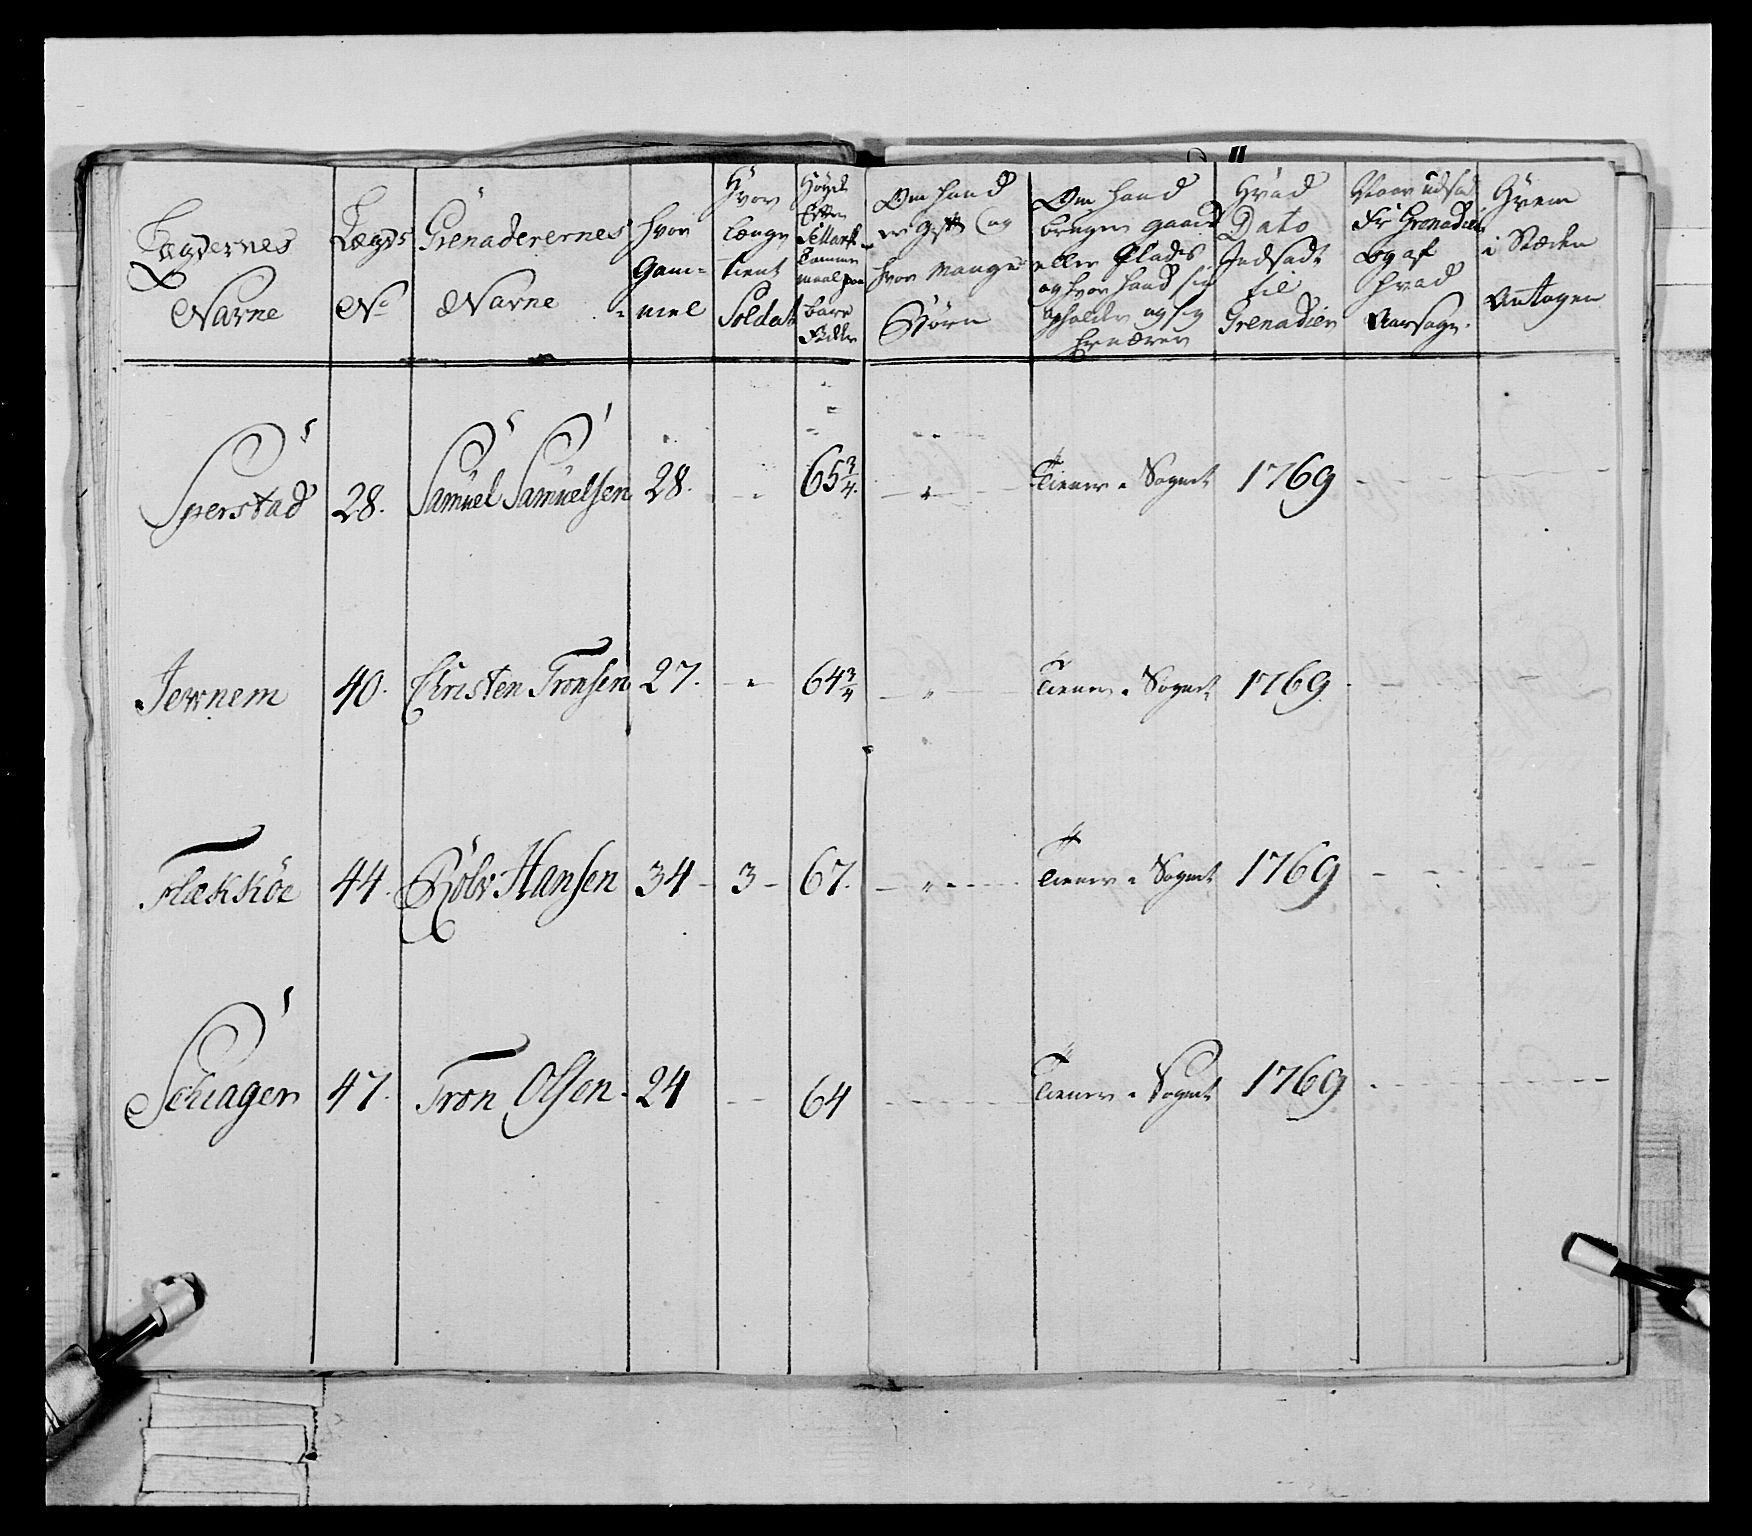 Lægdernes Navne
Lægds No
Grenaderernes Navne
Hvor Gam=mel
Hvor længe tient Soldat
Høyde Efter bare Fødder
Om hand er gift og hvor mange Børn
Om hand bruger gaard eller Plads og hvor hand sig opholder og sig Ernærer
Hvad Dato Indsadt til Grenadier
Naar udsadt Fr Grenadier og af hvad Aarsage.
Hvem i Stæden Antagen
Sperstad 28. Samuel Samuelsen 28. 65 3/4. Tiener i Sognet 1769
Jernem 40. Christen Tronsen 27. 64 3/4 Tiener i Sognet 1769
Flækköe 44. Rolv Hansen 34 - 3 - 67. Tiener i Sognet 1769
Schager 47. Tron Olsen. 24 64 Tiener i Sognet 1769